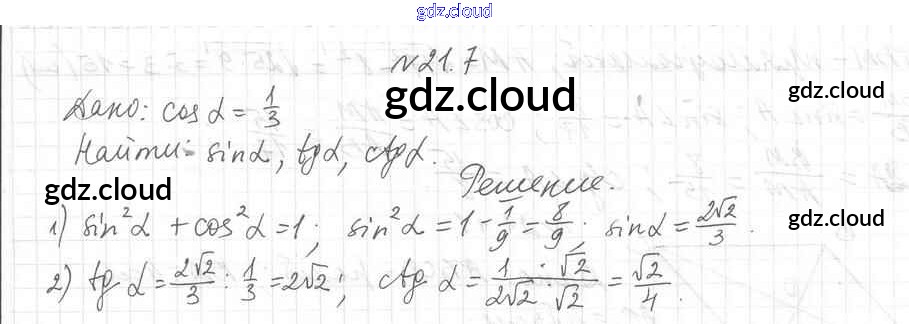 gdz.cloud
№21.7
gdz.cloud
gdz.cloud
Дано: cos α = 1/3
Найти: sin α, tg α, ctg α.
Решение.
gdz.cloud
gdz.cloud
1) sin²α + cos²α = 1; sin²α = 1 - 1/9 = 8/9; sin α = 2√2/3.
2) tg α = 2√2/3 : 1/3 = 2√2; ctg α = 1·√2/2√2·√2 = √2/4.